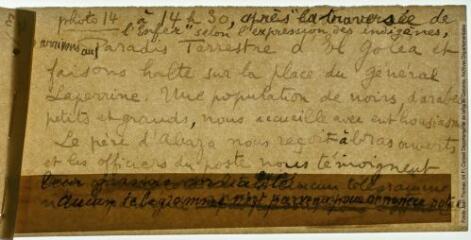 photo 14 à 14 h 30, après la traversée de
l'Enfer" selon l'expression des indigènes,
arrivons au Paradis Terrestre d'El Goléa et
faisons halte sur la place du général
Laperrine. Une population de noirs, d'arabes
petits et grands, nous accueille avec enthousiasme
Le père d'Abaza nous reçoit à bras ouverts
et les officiers du poste nous témoignent
leur
aucun télégramme n'est parvenu pour